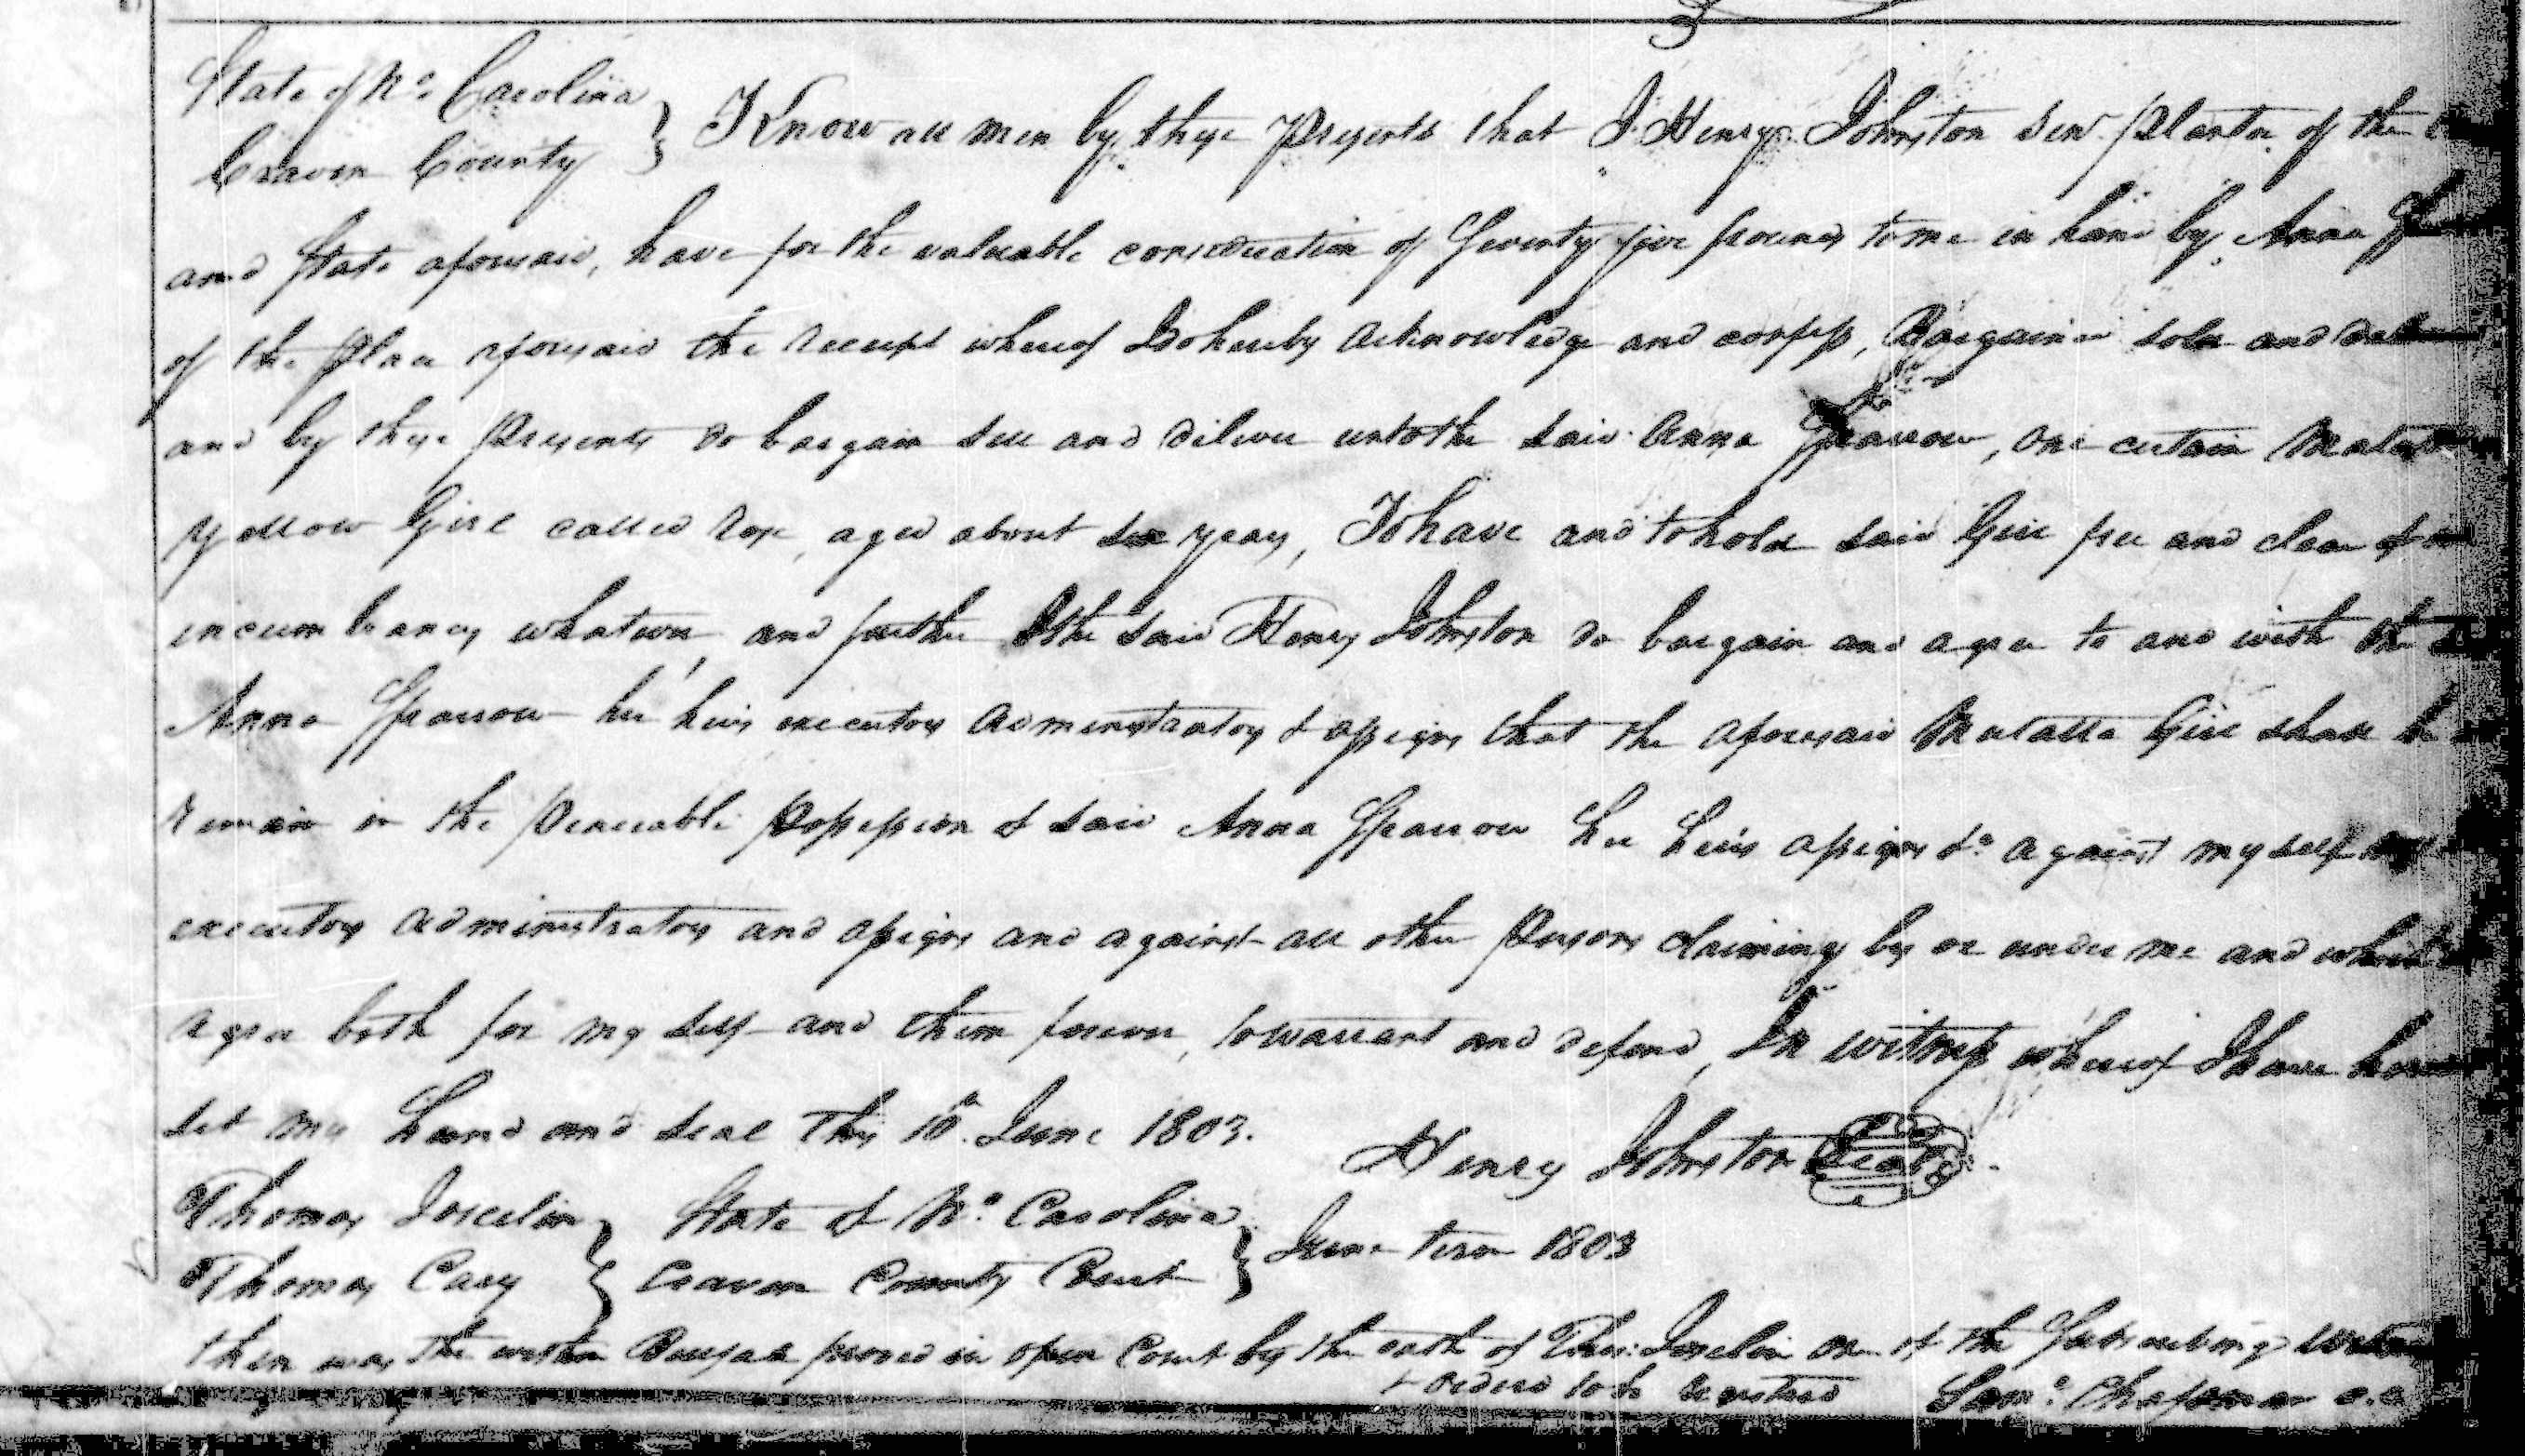 State of No. Carolina
Craven County } Know all men by these presents that I Henry Johnston Senr. planter of the
and State aforesaid, have for the valuable consideration of Seventy five pounds to me in hand by Anna
of the place aforesaid the receipt whereof I do hereby acknowledge and confess, Bargained sold and
and by these presents do bargain sell and deliver unto the said Anna Sparrow, one certain
yellow Girl called aged about six years, To have and to hold said Girl free and clear of
incumbrances whatever, and further I the said Henry Johnston do bargain and agree to and with the
Anna Sparrow her heirs executors administrators & assigns that the aforesaid Mulatto Girl shall
remain in the peaceable possession of said Anna Sparrow her heirs assigns &c. against myself
executors administrators and assigns and against all other persons claiming by or under me and
agree both for my self and them forever, to warrant and defend, In witness whereof I have
set my hand and seal this 10th. June 1803.
Henry Johnston Seal
Thomas Joscelin } State of No. Carolina
Thomas Cary } Craven County Court } June term 1803
then was the within proved in open Court by the oath of Thos: Joscelin one of the Subscribing
& ordered to be registered Sam. Chapman c.c